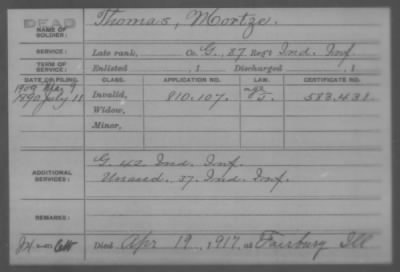 DEAD
NAME OF SOLDIER: Thomas, Mortze.
SERVICE: Late rank, Co. G, 87 Reg't Ind. Inf.
TERM OF SERVICE: Enlisted , 1 Discharged , 1
DATE OF FILING. CLASS. APPLICATION NO. LAW. CERTIFICATE NO.
1909 May 9
1890 July 11 Invalid, 810.107. age 5. 583.431
Widow,
Minor,
ADDITIONAL SERVICES: G. 42 Ind. Inf.
Unassd. 37. Ind. Inf.
REMARKS:
Died Apr 19, 1917, at Fairbury Ill